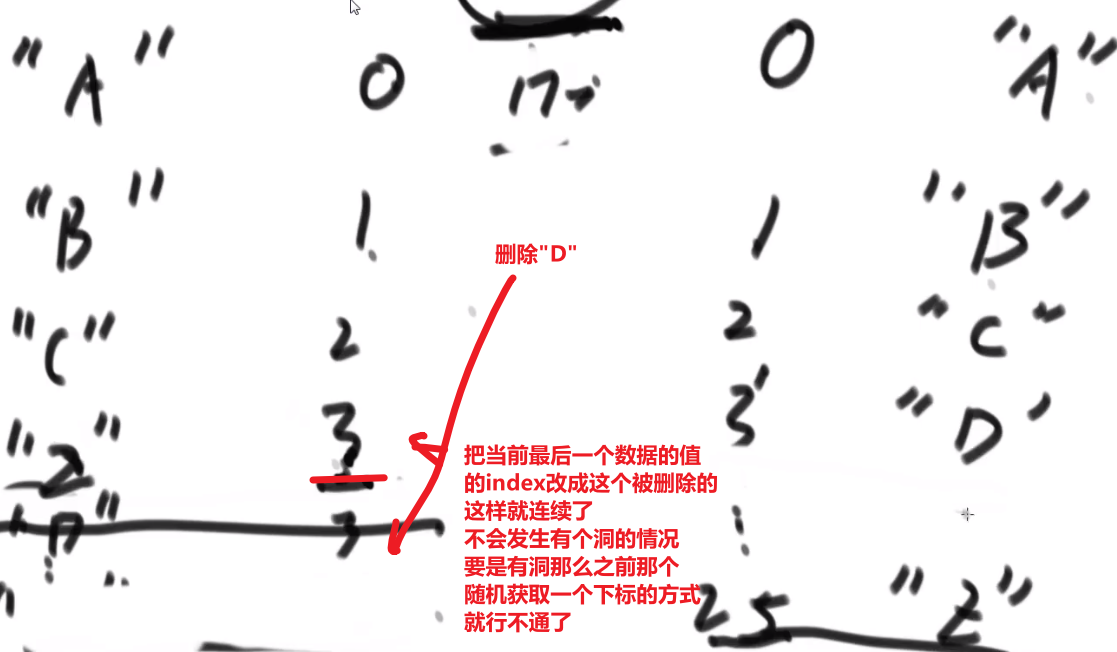 "A" 0 0 "A"
"B" 1 1 "B"
删除"D"
"C" 2 2 "C"
"Z" 3 3 "D"
把当前最后一个数据的值
的index改成这个被删除的
这样就连续了
"D" 3
不会发生有个洞的情况
要是有洞那么之前那个
随机获取一个下标的方式
25 "Z"
就行不通了